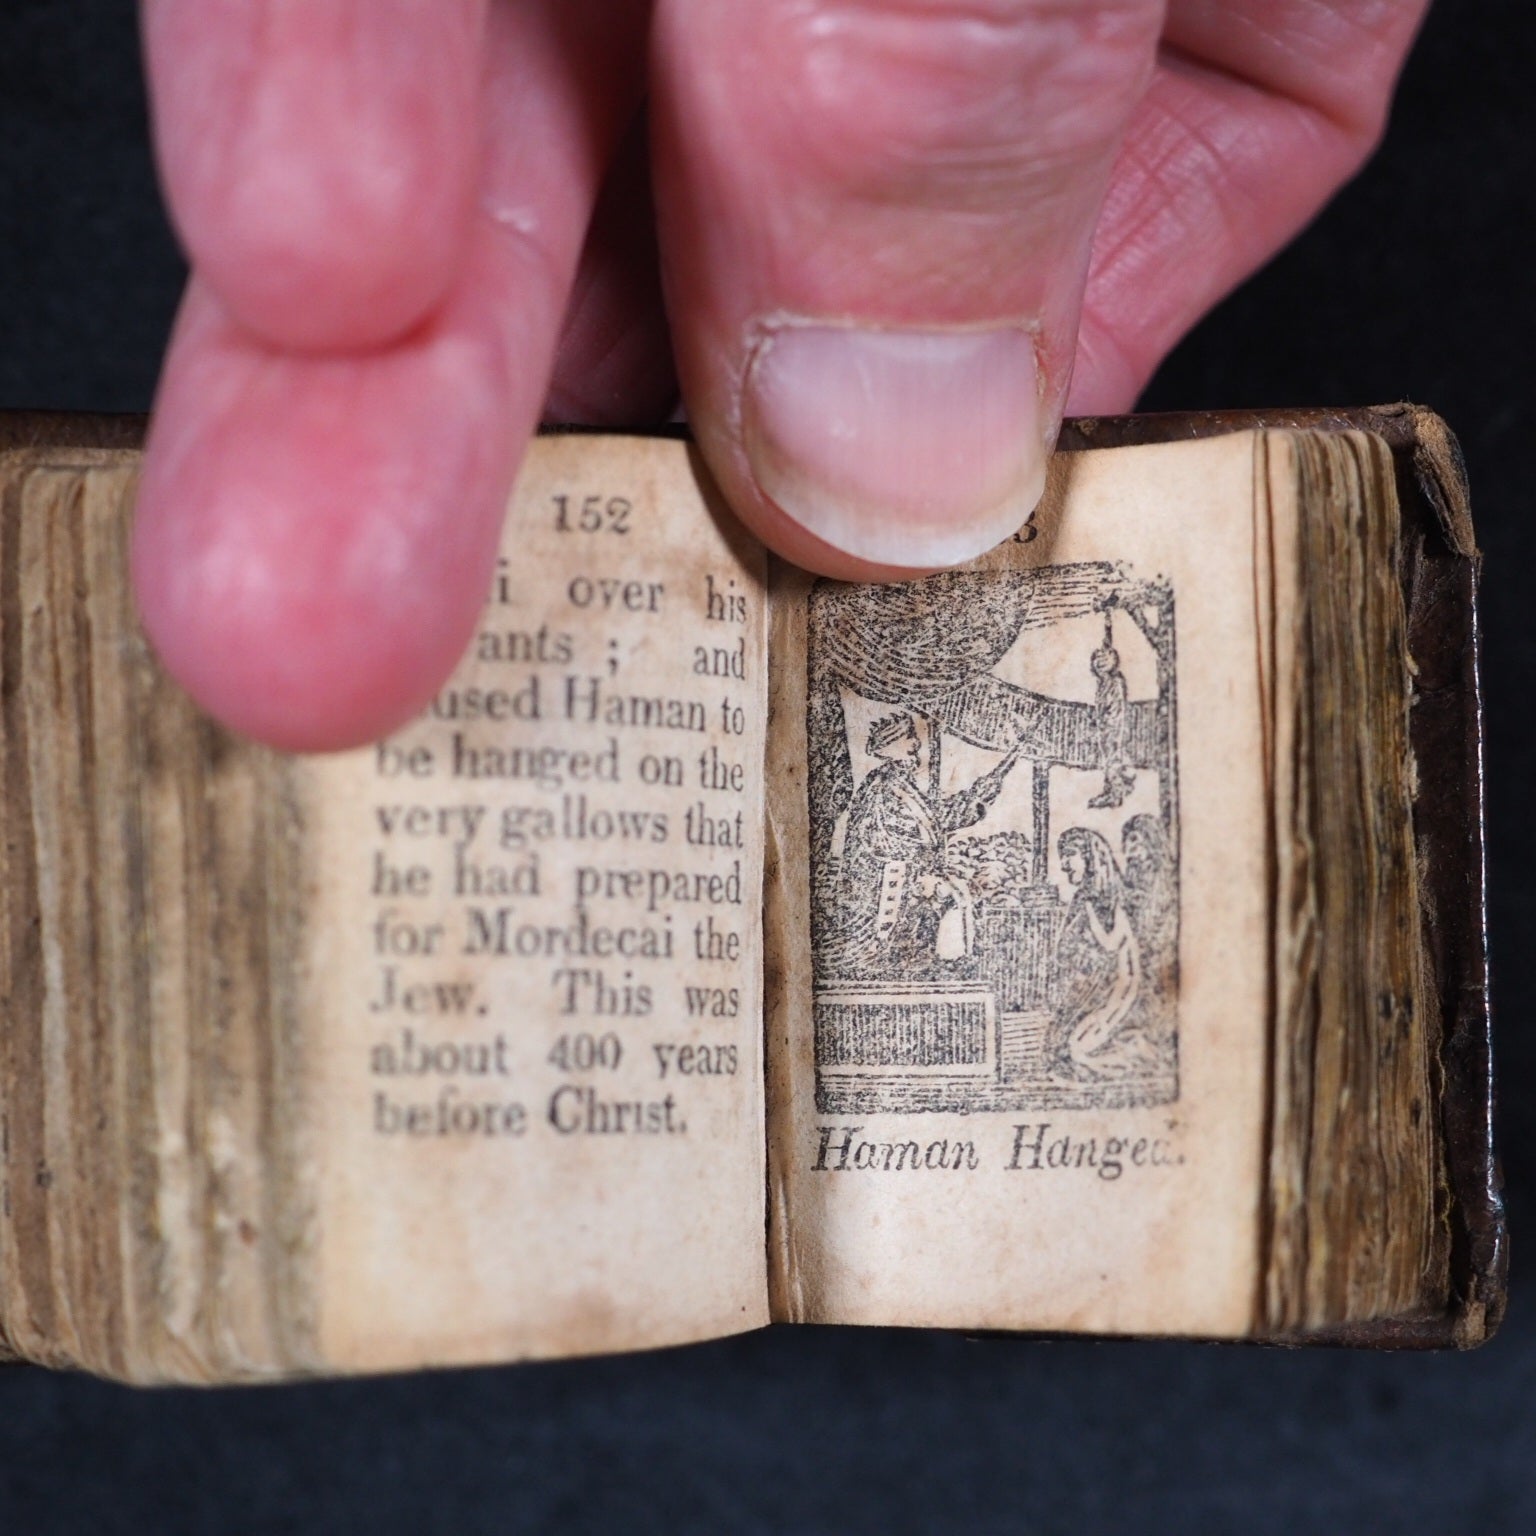 152
over his
ants ; and
used Haman to
be hanged on the
very gallows that
he had prepared
for Mordecai the
Jew. This was
about 400 years
before Christ.
3
Haman Hanged.